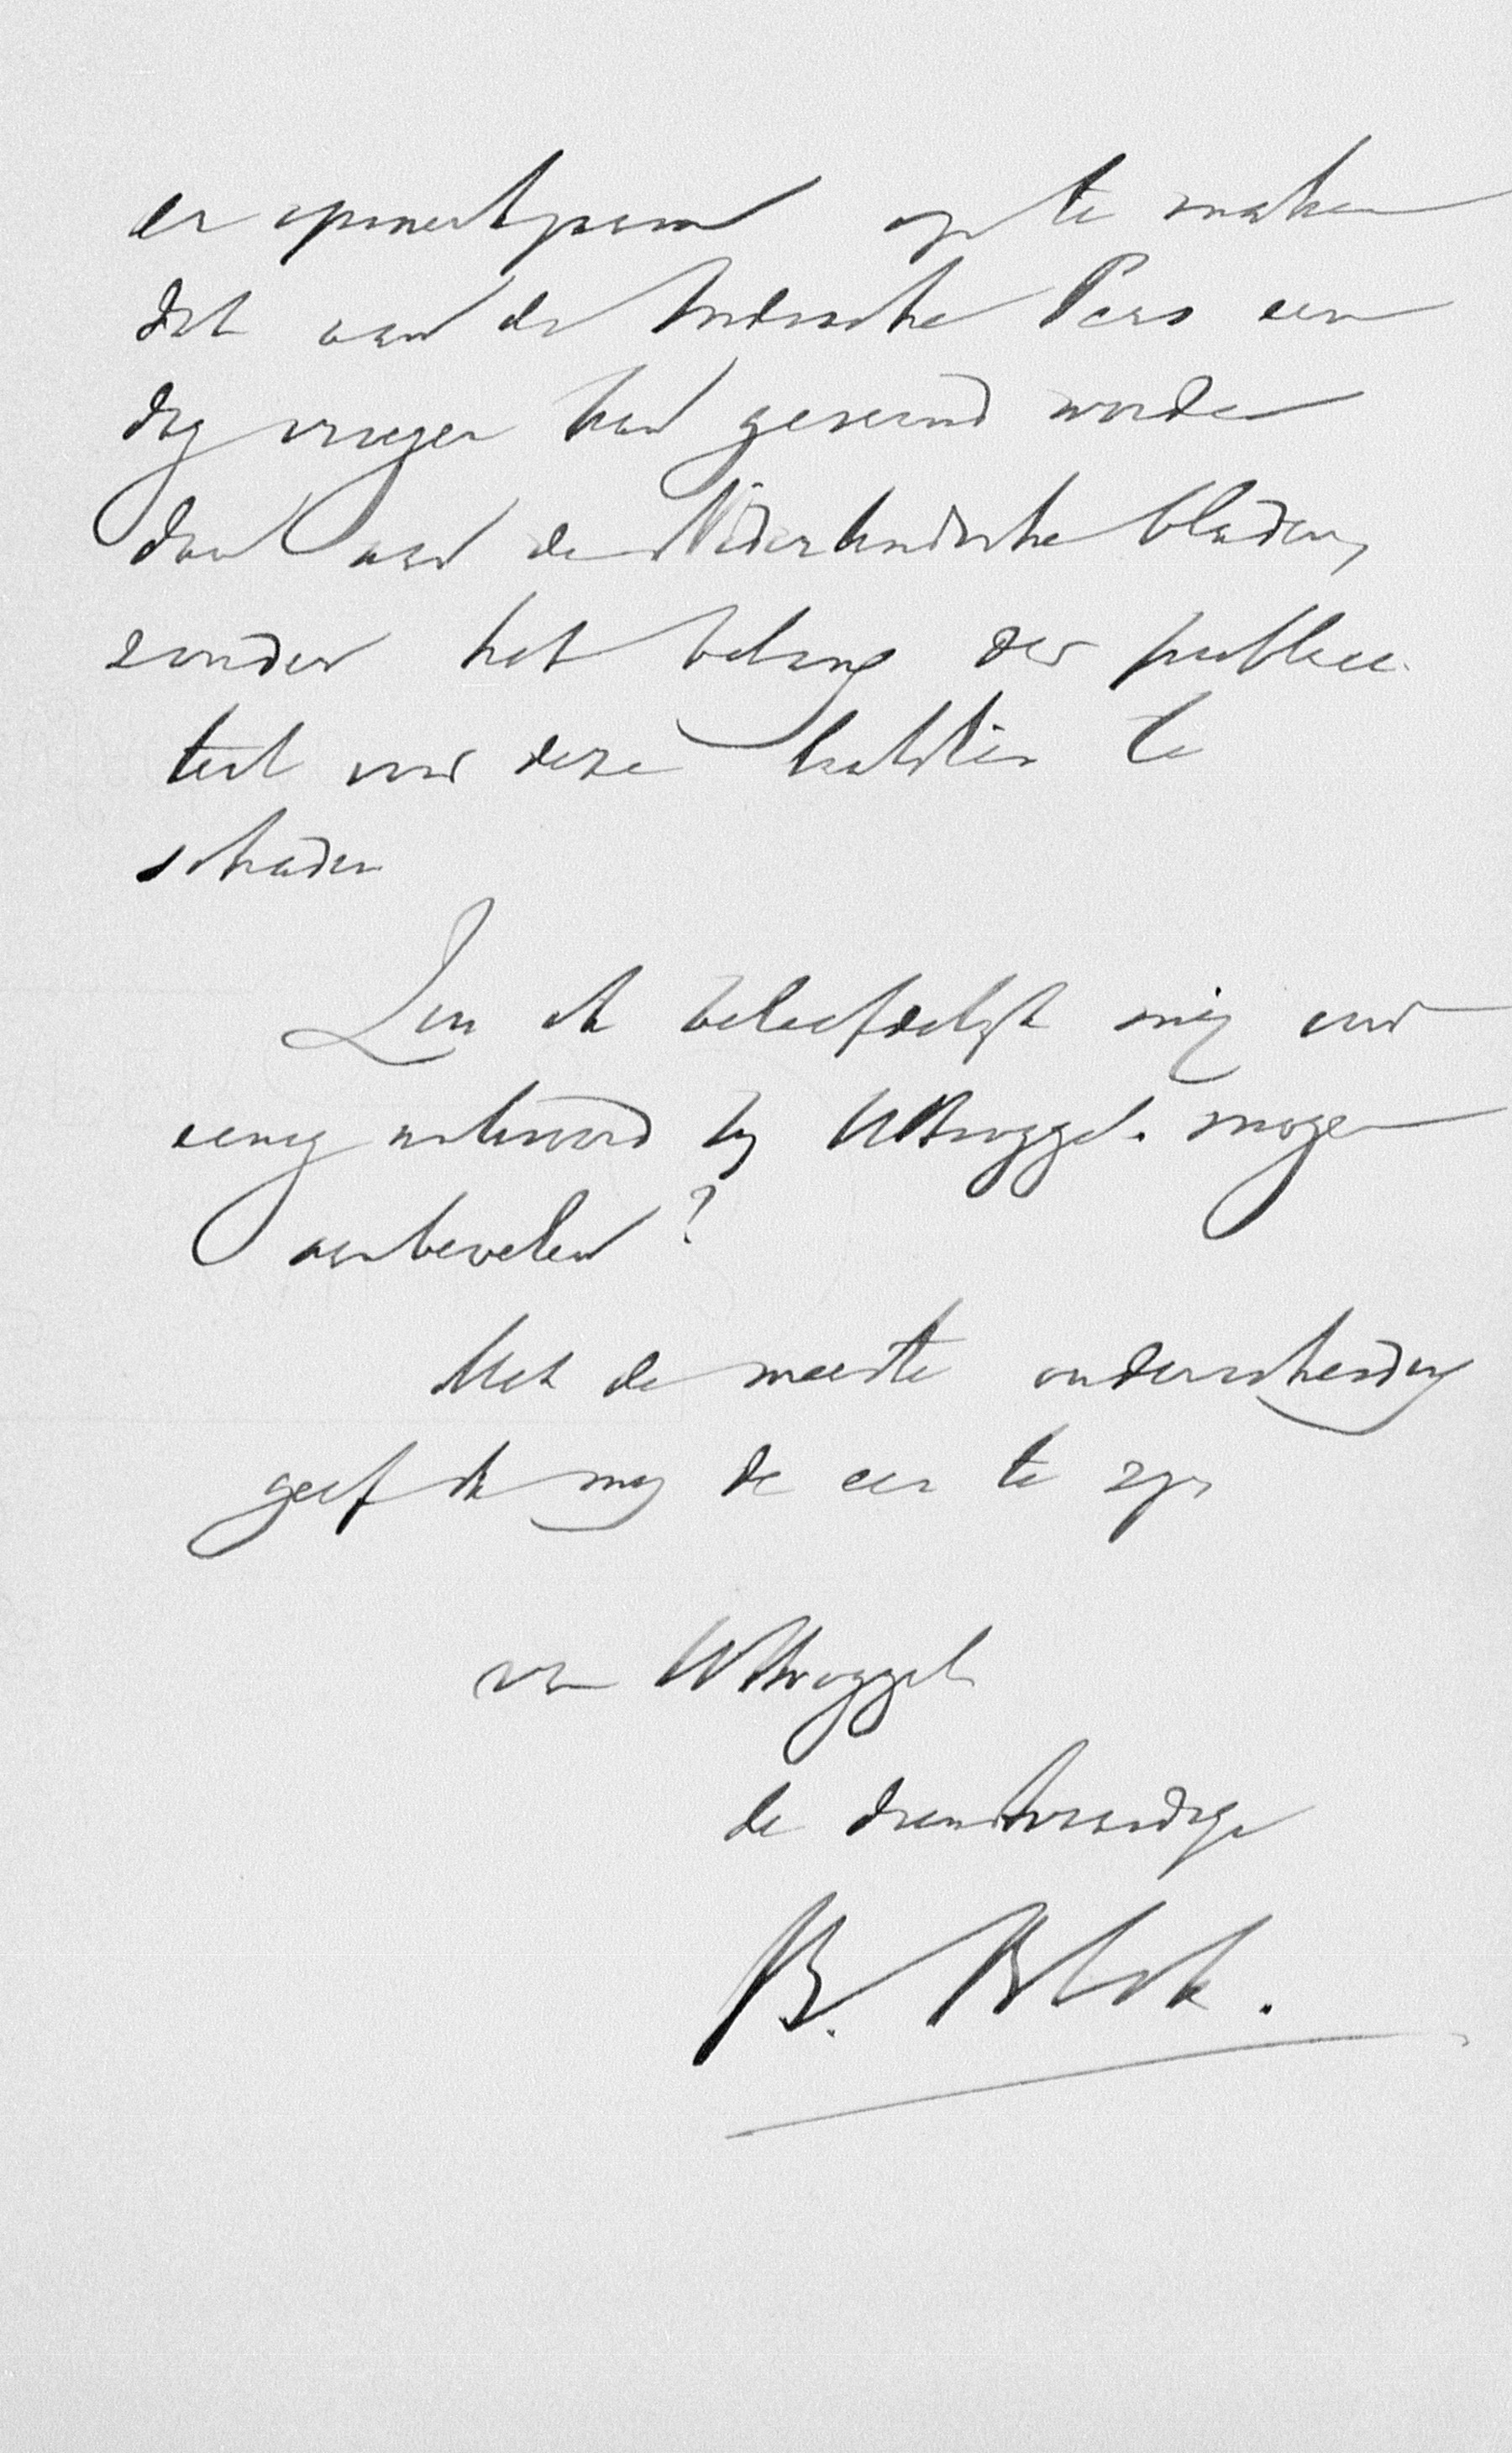 er opmerkzaam op te maken
dat aan de Indische Pers een
dag vroeger kan geseind worden
dan aan de Nederlandsche bladen,
zonder het belang der publici-
teit voor deze te
schaden
Zou ik beleefdelijk mij voor
eenig antwoord bij UHoogGel. mogen
aanbevelen?
Met de meeste onderscheiding
geef ik mij de eer te zijn
van UHoogGel
de dienstvaardige
B. Blok.